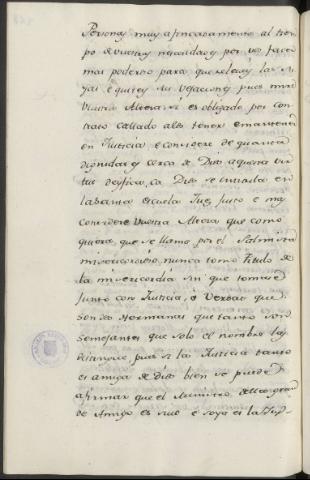 Personas muy afincadamente al tiem-
po de vuestras necesidades y por vos facer
mas poderoso para que releveis las su-
yas e quiteis su vejaciones pues mire
Vuestra Alteza si es obligado por con-
trato callado a les tener e mantener
en Justicia e considere de quanta
dignidad es cerca de Dios aquesta vir-
tud deifica, ca Dios se intitula en
la Santa escritura Juez justo e mas
considere Vuestra Alteza que como
quiera que se llamo por el Salmista
misericordioso, nunca tomo titulo de
la misericordia sin que tomase
junto con Justicia, o Verdad que
son dos Hermanas que tanto son
semejantes que solo el nombre las
distingue, pues si la Justicia tanto
es amiga de Dios bien se puede
afirmar que el Ministro della grand
Amigo es suio e soya es la